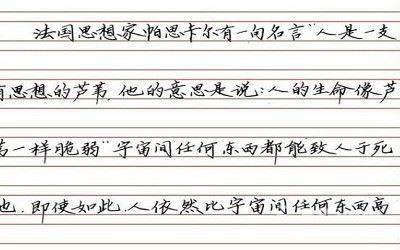 法国思想家帕思卡尔有一句名言“人是一支
有思想的芦苇.他的意思是说:人的生命像芦
苇一样脆弱”宇宙间任何东西都能致人于死
地.即使如此.人依然比宇宙间任何东西高